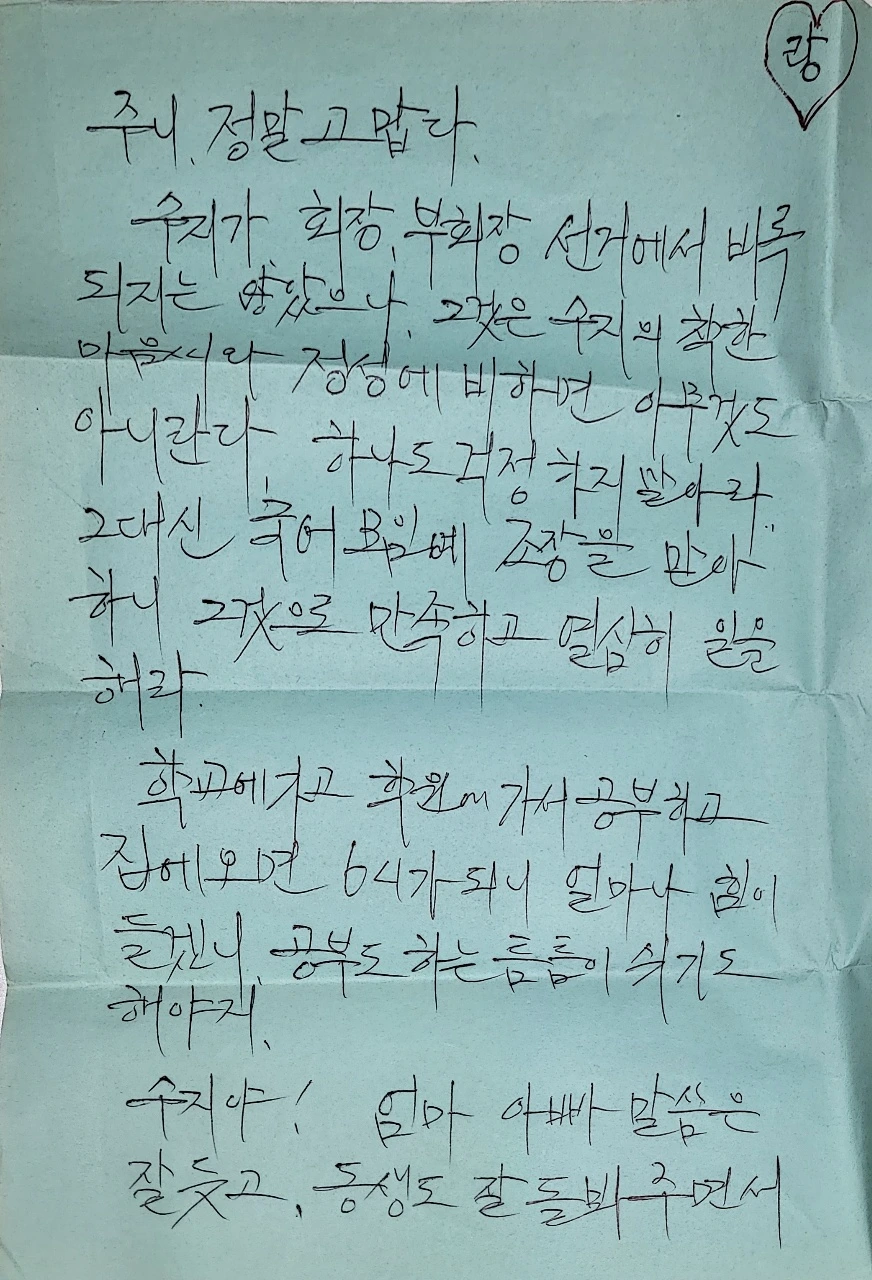 랑
주니, 정말 고맙다.
수지가 회장, 부회장 선거에서 비록
되지는 않았으나, 그것은 수지의 착한
마음씨와 정성에 비하면 아무것도
아니란다. 하나도 걱정하지 말아라.
그대신 국어 모임에 조장을 맡아
하니 그것으로 만족하고 열심히 일을
해라.
학교에 가고 학원에 가서 공부하고
집에 오면 6시가 되니 얼마나 힘이
들겠니, 공부도 하는 틈틈이 쉬기도
해야지.
수지야! 엄마 아빠 말씀은
잘 듣고, 동생도 잘 돌봐 주면서